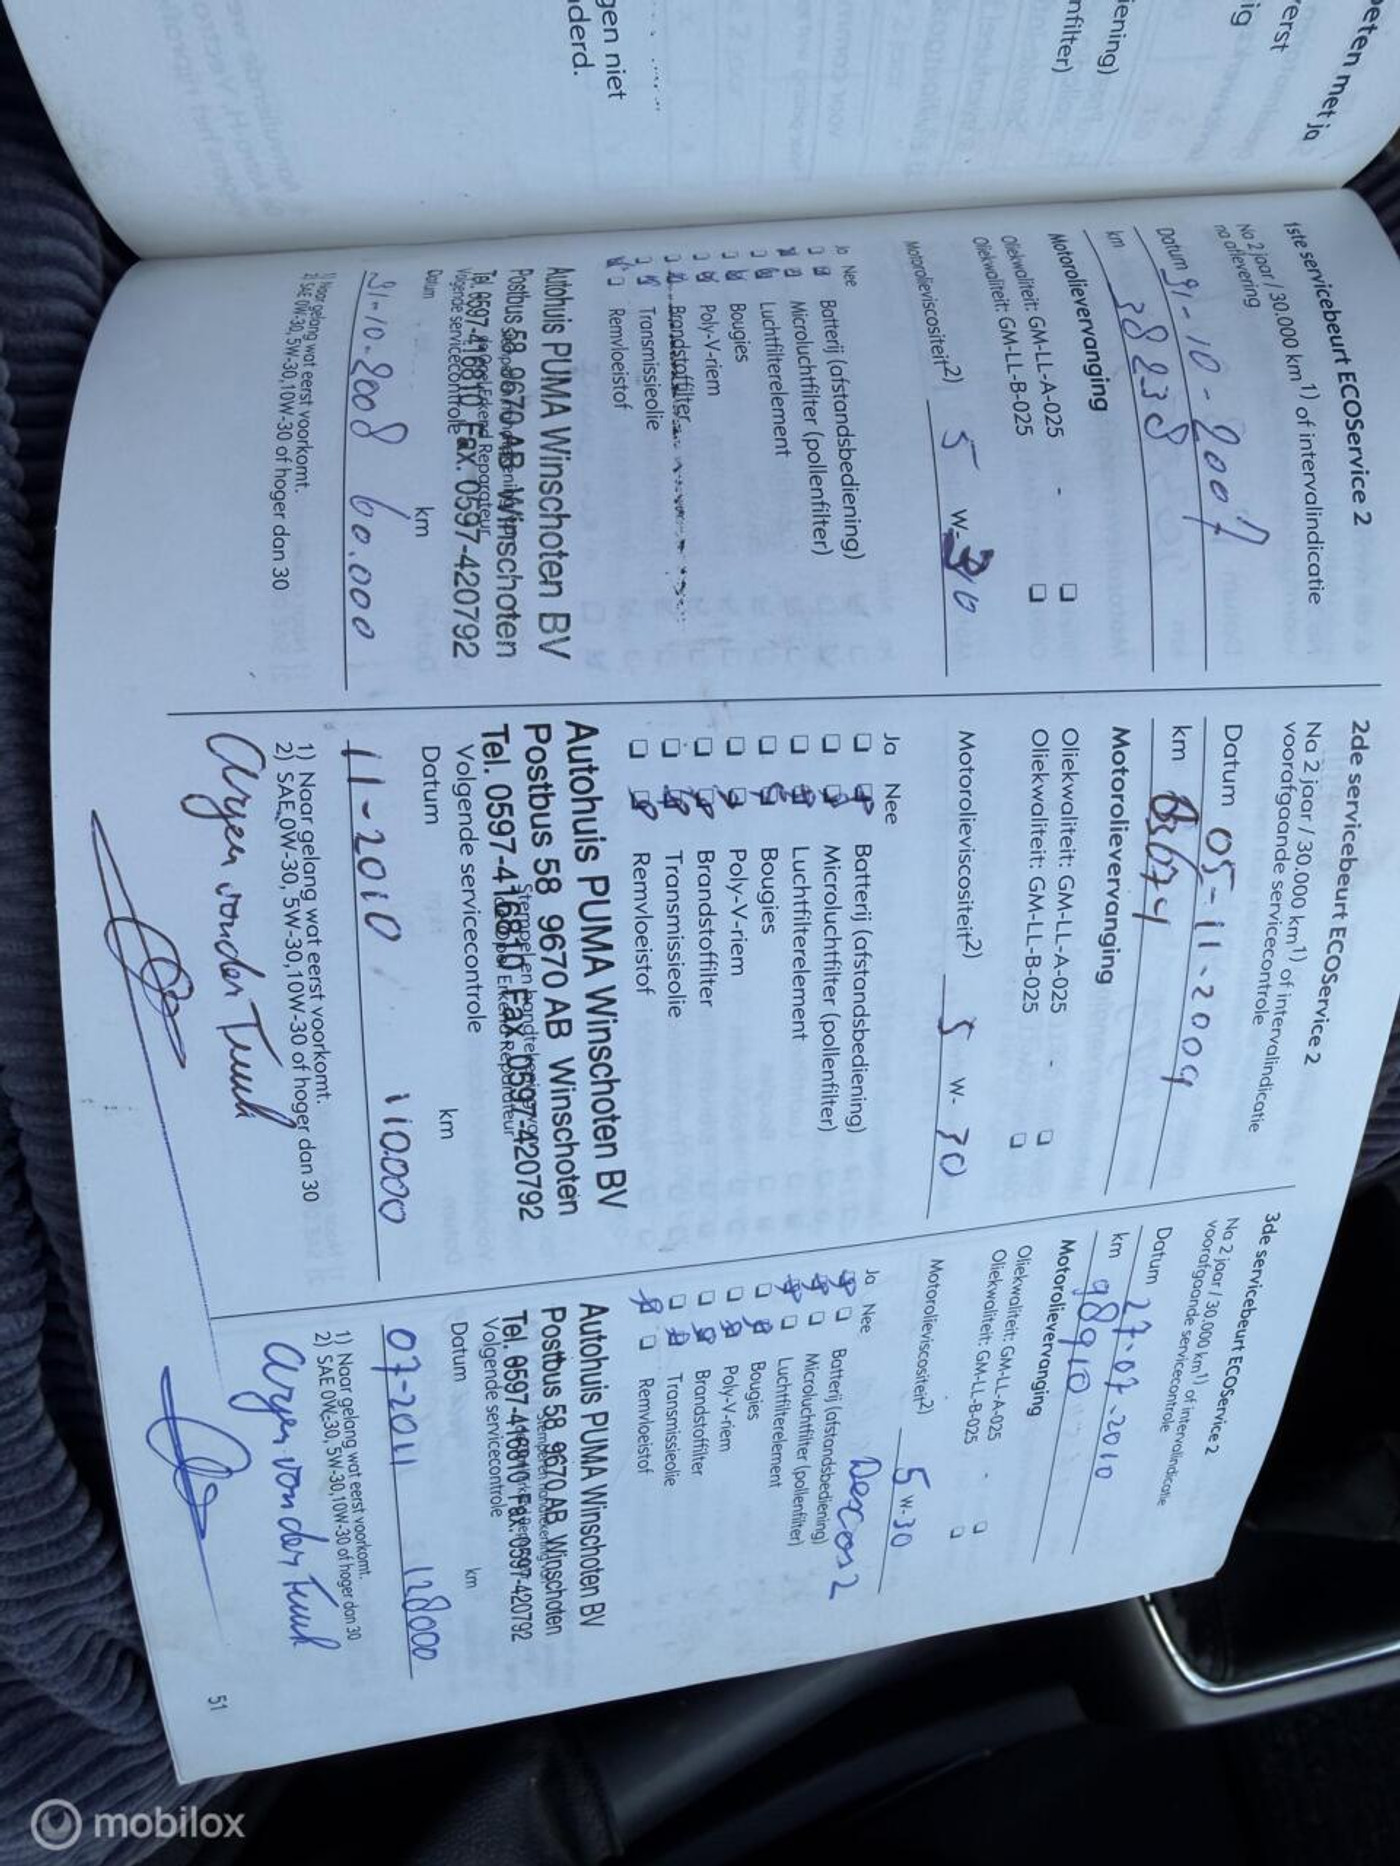 eten met ja
erst
ig
iening)
nfilter)
gen niet
derd.
1ste servicebeurt ECOService 2
Na 2 jaar / 30.000 km1) of intervalindicatie
na aflevering
Datum 31-10-200
km 38238
Motorolievervanging
Oliekwaliteit: GM-LL-A-025 -
Oliekwaliteit: GM-LL-B-025
Motorolieviscositeit2) 5 W-30
Ja Nee
Batterij (afstandsbediening)
Microluchtfilter (pollenfilter)
Luchtfilterelement
Bougies
Poly-V-riem
Brandstoffilter
Transmissieolie
Remvloeistof
Autohuis PUMA Winschoten BV
Postbus 58 9670 AB Winschoten
Tel. 0597-416810 Fax. 0597-420792
Volgende servicecontrole
Datum km
31-10-2008 60.000
1) Naar gelang wat eerst voorkomt.
2) SAE 0W-30, 5W-30,10W-30 of hoger dan 30
2de servicebeurt ECOService 2
Na 2 jaar / 30.000 km1) of intervalindicatie
voorafgaande servicecontrole
Datum 05-11-2009
km 83674
Motorolievervanging
Oliekwaliteit: GM-LL-A-025 -
Oliekwaliteit: GM-LL-B-025
Motorolieviscositeit2) 5 W-30
Ja Nee
Batterij (afstandsbediening)
Microluchtfilter (pollenfilter)
Luchtfilterelement
Bougies
Poly-V-riem
Brandstoffilter
Transmissieolie
Remvloeistof
Autohuis PUMA Winschoten BV
Postbus 58 9670 AB Winschoten
Tel. 0597-416810 Fax. 0597-420792
Volgende servicecontrole
Datum km
11-2010 110.000
1) Naar gelang wat eerst voorkomt.
2) SAE 0W-30, 5W-30,10W-30 of hoger dan 30
Arjen van der Tuuk
3de servicebeurt ECOService 2
Na 2 jaar / 30.000 km1) of intervalindicatie
voorafgaande servicecontrole
Datum 27-07-2010
km 98910
Motorolievervanging
Oliekwaliteit: GM-LL-A-025 -
Oliekwaliteit: GM-LL-B-025
Motorolieviscositeit2) 5 W-30
Dexos 2
Ja Nee
Batterij (afstandsbediening)
Microluchtfilter (pollenfilter)
Luchtfilterelement
Bougies
Poly-V-riem
Brandstoffilter
Transmissieolie
Remvloeistof
Autohuis PUMA Winschoten BV
Postbus 58 9670 AB Winschoten
Tel. 0597-416810 Fax. 0597-420792
Volgende servicecontrole
Datum km
07-2011 128000
1) Naar gelang wat eerst voorkomt.
2) SAE 0W-30, 5W-30,10W-30 of hoger dan 30
Arjen van der Tuuk
51
mobilox